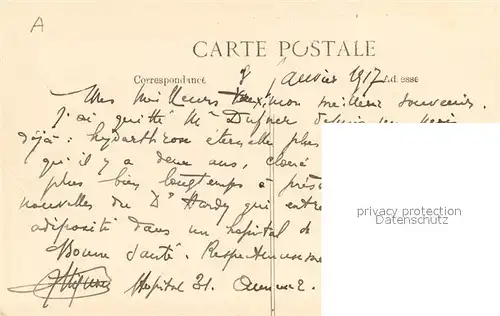 A
CARTE POSTALE
Correspondance 8 Janvier 1917 Adresse
Mes meilleurs vœux, mon meilleur souvenir.
J'ai quitté Mr Dufner depuis un mois
déjà: hydarthrose éternelle plus
qu'il y a deux ans, cloué
plus bien longtemps à prés
nouvelles du Dr Hardy qui entre
adiposité dans un hopital de
Bonne Santé. Respectueuseme
Hopital 31.
privacy protection
Datenschutz